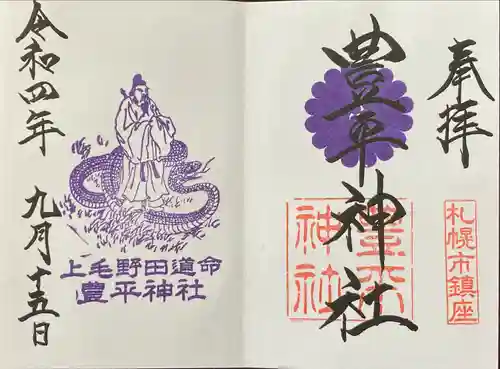 奉拝
豊平神社
豊平神社
札幌市鎮座
上毛野田道命
豊平神社
令和四年 九月十五日